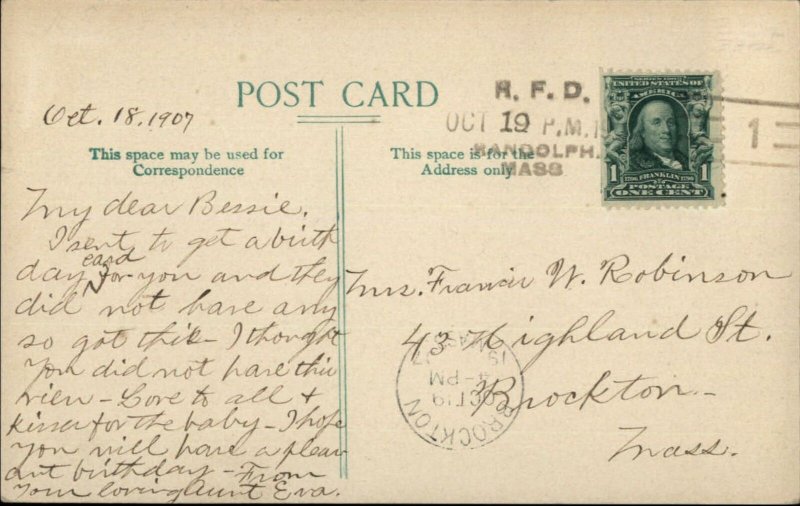 POST CARD
Oct. 18, 1907
This space may be used for
Correspondence
This space is for the
Address only
R. F. D.
OCT 19 P.M.
RANDOLPH.
MASS
1
SERIES 1902
UNITED STATES OF
AMERICA
1 1706 FRANKLIN 1790 1
POSTAGE
ONE CENT
My dear Bessie.
I sent to get a birth
day card for you and they
did not have any
so got this - I thought
you did not have this
view - Love to all +
kisses for the baby - I hope
you will have a pleas
ant birthday - From
your loving Aunt Eva.
Mrs. Francis W. Robinson
43 Highland St.
Brockton -
Mass.
BROCKTON
OCT 19
4-PM
MASS.